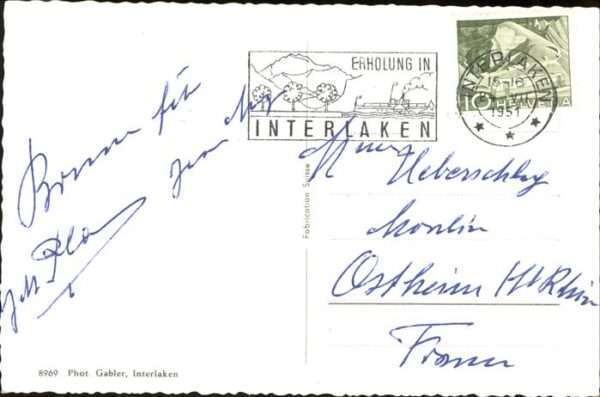 ERHOLUNG IN
INTERLAKEN
INTERLAKEN
1951
10
Bonne fête
Fabrication Suisse
Ueberschlag
Moulin
Ostheim Ht Rhin
France
8969 Phot Gabler, Interlaken